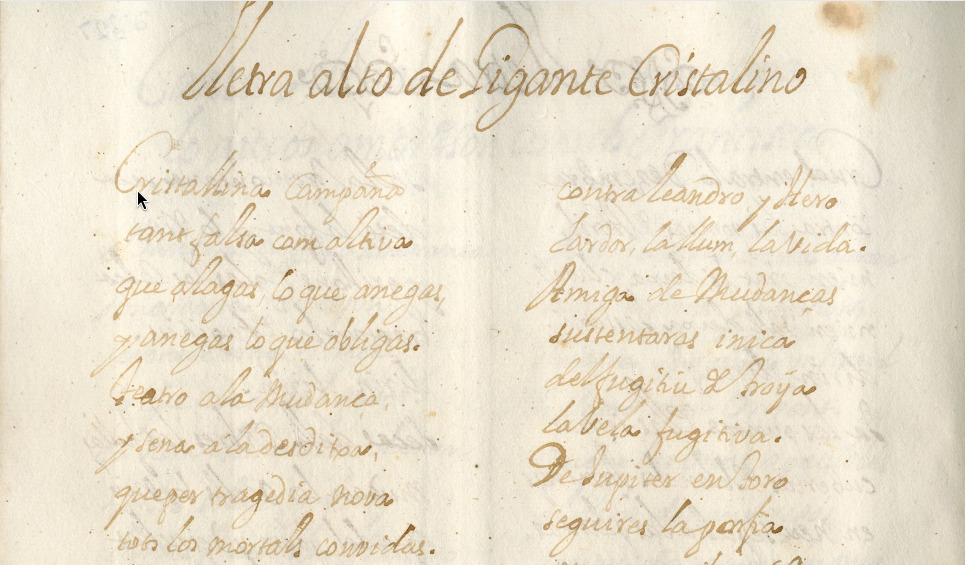 lletra alto de Gigante Cristalino
Cristallina Campaña
tant falsa com altiva
que alagas, lo que anegas,
y anegas lo que obligas.
teatro a la Mudanca,
y sena a la desditxa,
que per tragedia nova
tots los mortals convidas.
contra leandro y Hero
lardor, la llum, la vida.
Amiga de Mudancas
sustentaras inica
del fugitiu de Troÿa
la Vela fugitiva.
De Jupiter en Toro
seguires la porfia